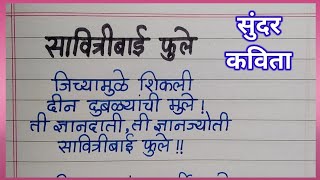 सुंदर
कविता
सावित्रीबाई फुले
जिच्यामुळे शिकली
दीन दुबळ्यांची मुले!
ती ज्ञानदाती, ती ज्ञानज्योती
सावित्रीबाई फुले!!